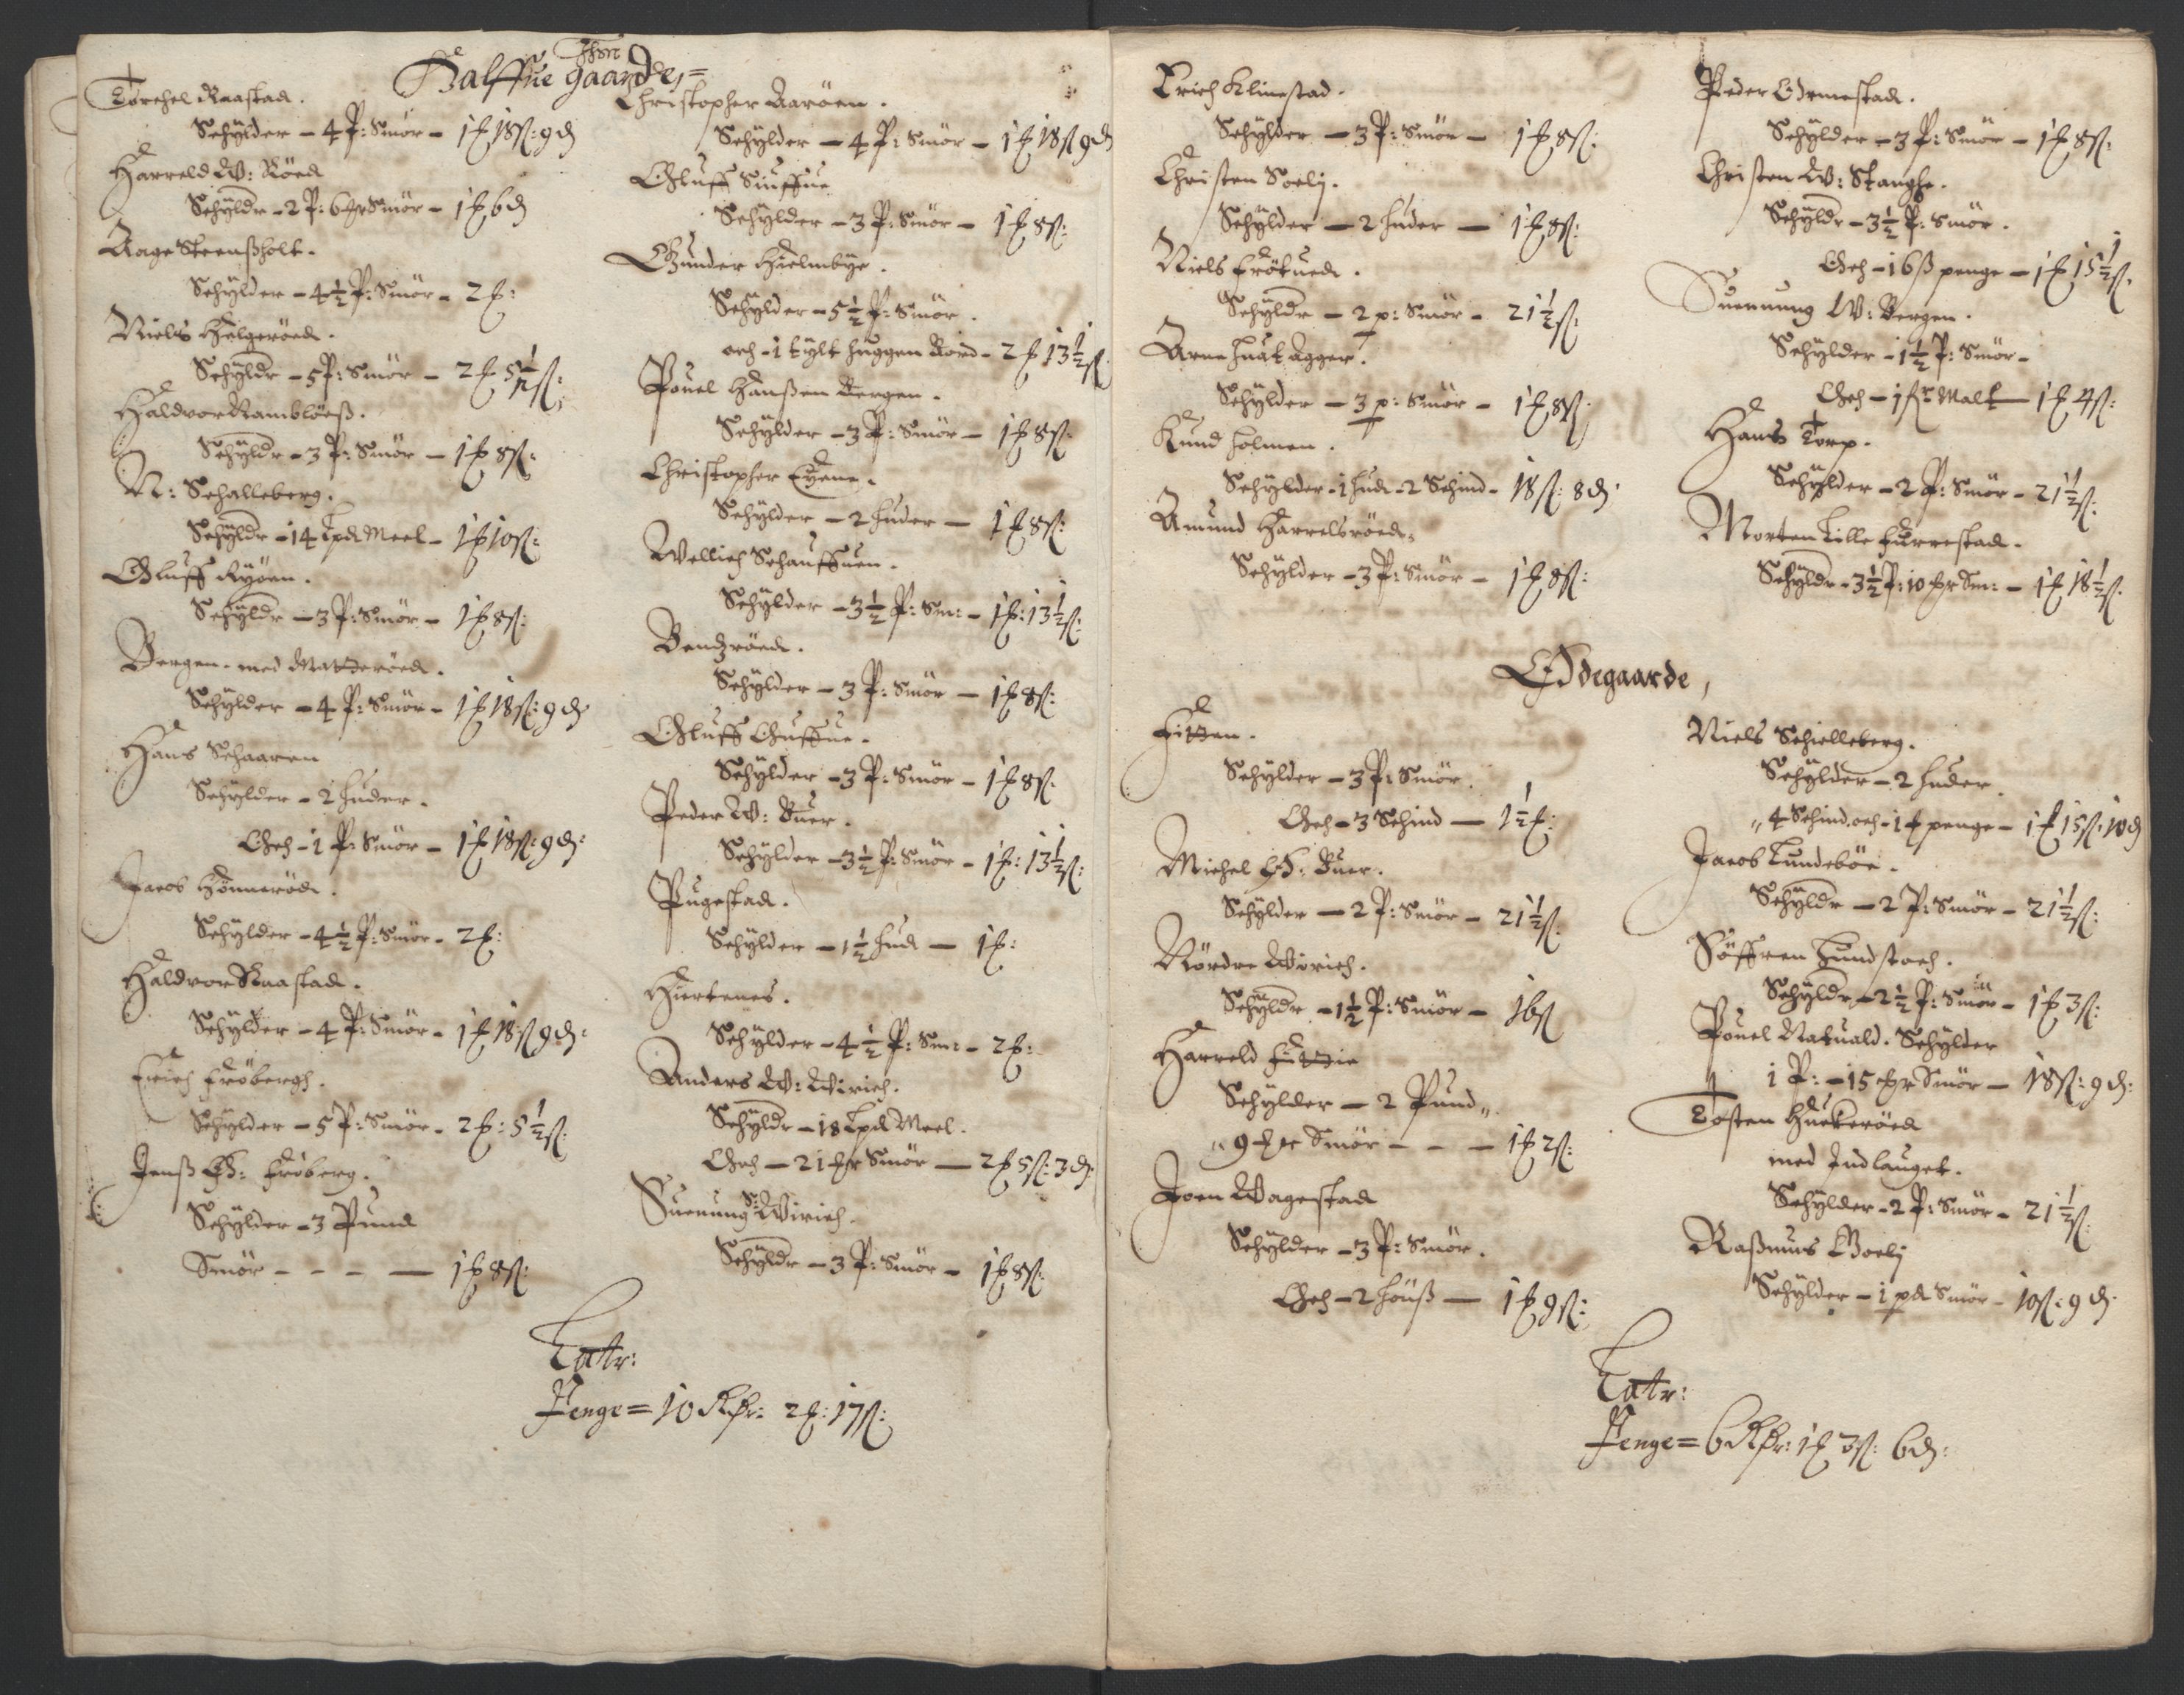 Ihsn
Halffue gaarde,=
Torchel Raastad.
Schylder - 4 P: Smör - 1 ẞ 18 sk: 9 d
Harreld W: Röed
Schyldr - 2 P: 6 mr Smör - 1 ẞ 6 d
Aage Steenßholt.
Schylder - 4½ P: Smör - 2 ẞ:
Niels Helgeröed.
Schyldr - 5 P: Smör - 2 ẞ 5½ sk:
Haldvor Rambloeß.
Schyldr - 3 P: Smör - 1 ẞ 8 sk:
N: Schalleberg.
Schyldr - 14 Lpd Meel - 1 ẞ 10 sk:
Oluff Ryöen.
Schyldr - 3 P: Smör - 1 ẞ 8 sk:
Bergen. med Matteröed.
Schylder - 4 P: Smör - 1 ẞ 18 sk: 9 d
Hans Schaaren
Schylder - 2 huder.
Och - 1 P: Smör - 1 ẞ 18 sk: 9 d:
Jacob Hönneröd.
Schylder - 4½ P: Smör - 2 ẞ:
Haldvor Raastad.
Schylder - 4 P: Smör - 1 ẞ 18 sk 9 d:
Erich Fröbergh.
Schylder - 5 P: Smör - 2 ẞ: 5½ sk:
Jenß Ö: Fröberg.
Schylder - 3 Pund
Smör - - - — 1 ẞ 8 sk:
Christopher Aaröen.
Schylder - 4 P: Smör - 1 ẞ 18 sk 9 d
Oluff Siuffue
Schylder - 3 P: Smör - 1 ẞ 8 sk:
Gunder Hielmbye.
Schylder - 5½ P: Smör.
och - 1 tylt huggen Bord - 2 ẞ 13½ sk
Pouel Hanßen Bergen.
Schylder - 3 P: Smör - 1 ẞ 8 sk:
Christopher Eyene.
Schylder - 2 huder - 1 ẞ 8 sk:
Wellich Schauffuen.
Schylder - 3½ P: Sm: - 1 ẞ: 13½ sk:
Bentzröed.
Schylder - 3 P: Smör - 1 ẞ 8 sk:
Oluff Guffue.
Schylder - 3 P: Smör - 1 ẞ 8 sk:
Peder W: Buer.
Schylder - 3½ P: Smör - 1 ẞ: 13½ sk:
Pugestad.
Schylder - 1½ hud - 1 ẞ:
Hiertenes.
Schylder - 4½ P: Sm: - 2 ẞ:
Anders W: Wirich.
Schyldr - 18 Lpd Meel.
Och - 21 mr Smör - 2 ẞ 5 sk: 3 d
Suenung S: Wirich.
Schyldr - 3 P: Smör - 1 ẞ 8 sk:
Latr:
Penge = 10 Rdr: 2 ẞ: 17 sk:
Erich Klinestad.
Schylder - 3 P: Smör - 1 ẞ 8 sk:
Christen Soelj.
Schylder - 2 huder - 1 ẞ 8 sk:
Niels Frötued.
Schyldr - 2 p: Smör - 21½ sk:
Arne Huat Agger.
Schylder - 3 p: Smör - 1 ẞ 8 sk:
Knud Holmen.
Schylder - 1 hud - 2 Schind - 18 sk: 8 d.
Amund Harrelsröed.
Schylder - 3 P: Smör - 1 ẞ 8 sk:
Peder Ormestad.
Schylder - 3 P: Smör - 1 ẞ 8 sk:
Christen W: Stanghe.
Schyldr - 3½ P: Smör.
Och - 16 ß penge - 1 ẞ 15½ sk.
Suenung W: Bergen.
Schylder - 1½ P: Smör -
Och - 1 sk: Malt - 1 ẞ 4 sk:
Hans Torp.
Schylder - 2 P: Smör - 21½ sk:
Morten Lille Furrestad.
Schyldr - 3½ P: 10 mr Sm: - 1 ẞ 18½ sk.
Ödegaarde,
Fitten.
Schylder - 3 P: Smör.
Och - 3 Schind - 1½ ẞ:
Michel Ö: Buer.
Schylder - 2 P: Smör - 21½ sk
Nördre Wirich.
Schyldr - 1½ P: Smör - 16 sk
Harreld Fittie
Schylder - 2 Pund„
„ 9 mr Smör - - - 1 ẞ 2 sk:
Joen Wagestad
Schylder - 3 P: Smör.
Och - 2 Höuß - 1 ẞ 9 sk:
Niels Schielleberg.
Schylder - 2 huder.
„ 4 Schind. och - 1 ẞ penge - 1 ẞ 15 sk: 10 d
Jacob Lundeböe.
Schyldr - 2 P: Smör - 21½ sk:
Söffren Lundstoch.
Schyldr - 2½ P: Smör - 1 ẞ 3 sk:
Pouel Natuald. Schylder
1 P: - 15 mr Smör - 18 sk: 9 d:
Tosten Hueteröed
med Indlauget.
Schylder - 2 P: Smör - 21½ sk:
Raßmus Boelj
Schylder - 1 pd Smör - 10 sk: 9 d.
Latr:
Penge = 6 Rdr: 1 ẞ 3 sk: 6 d: